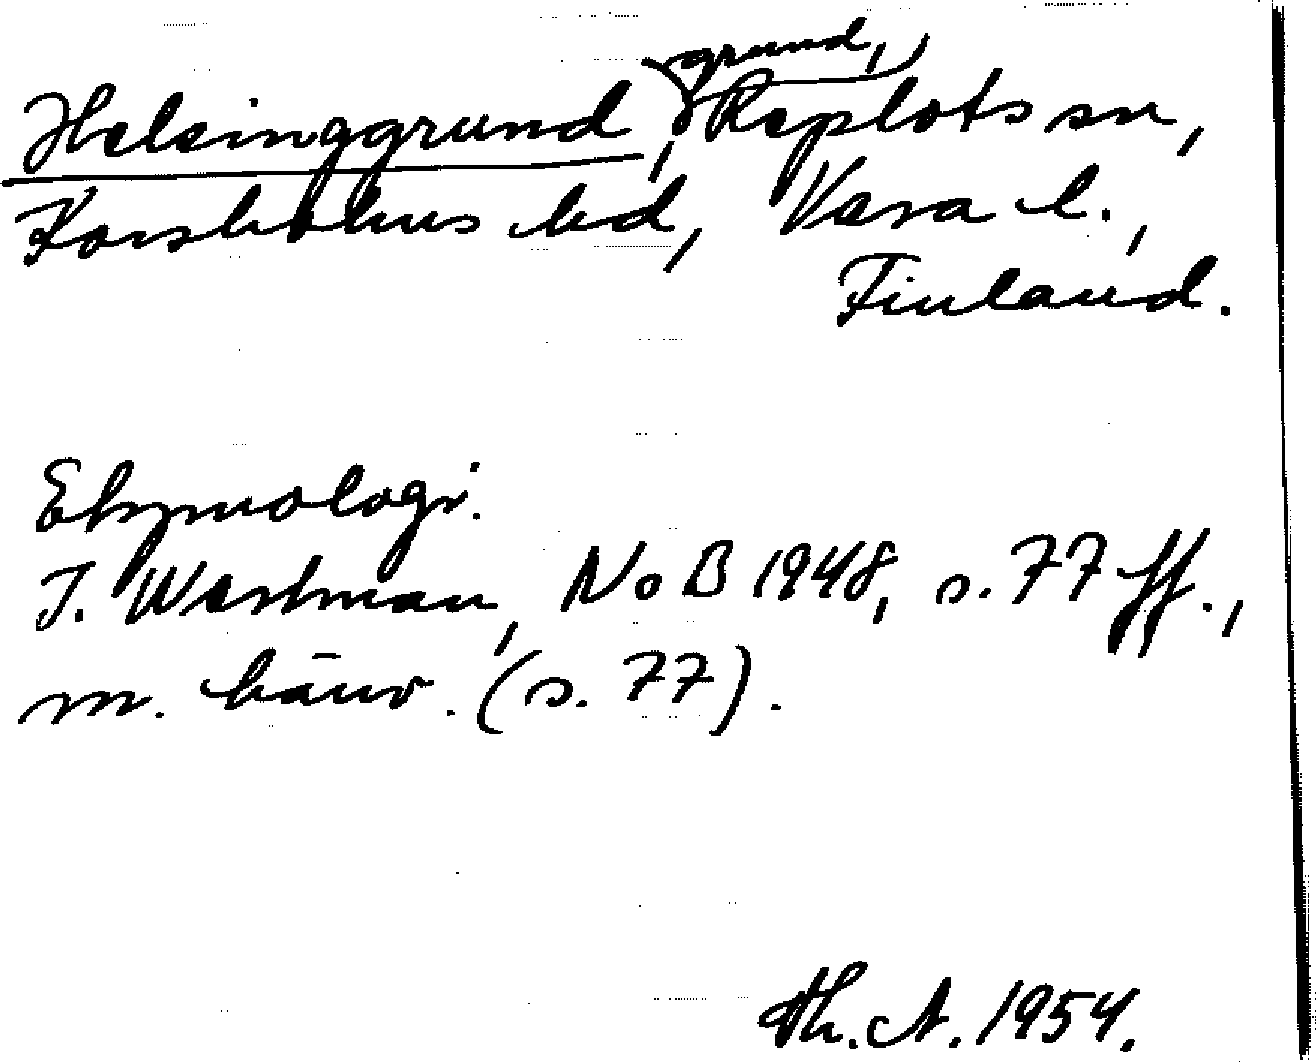 Helsinggrund, grund, Replots sn,
Korsholms hd, Vasa l.,
Finland.
Etymologi.
I. Westman, NoB 1948, s. 77 ff.,
m. hänv. (s. 77).
Th. A. 1954.